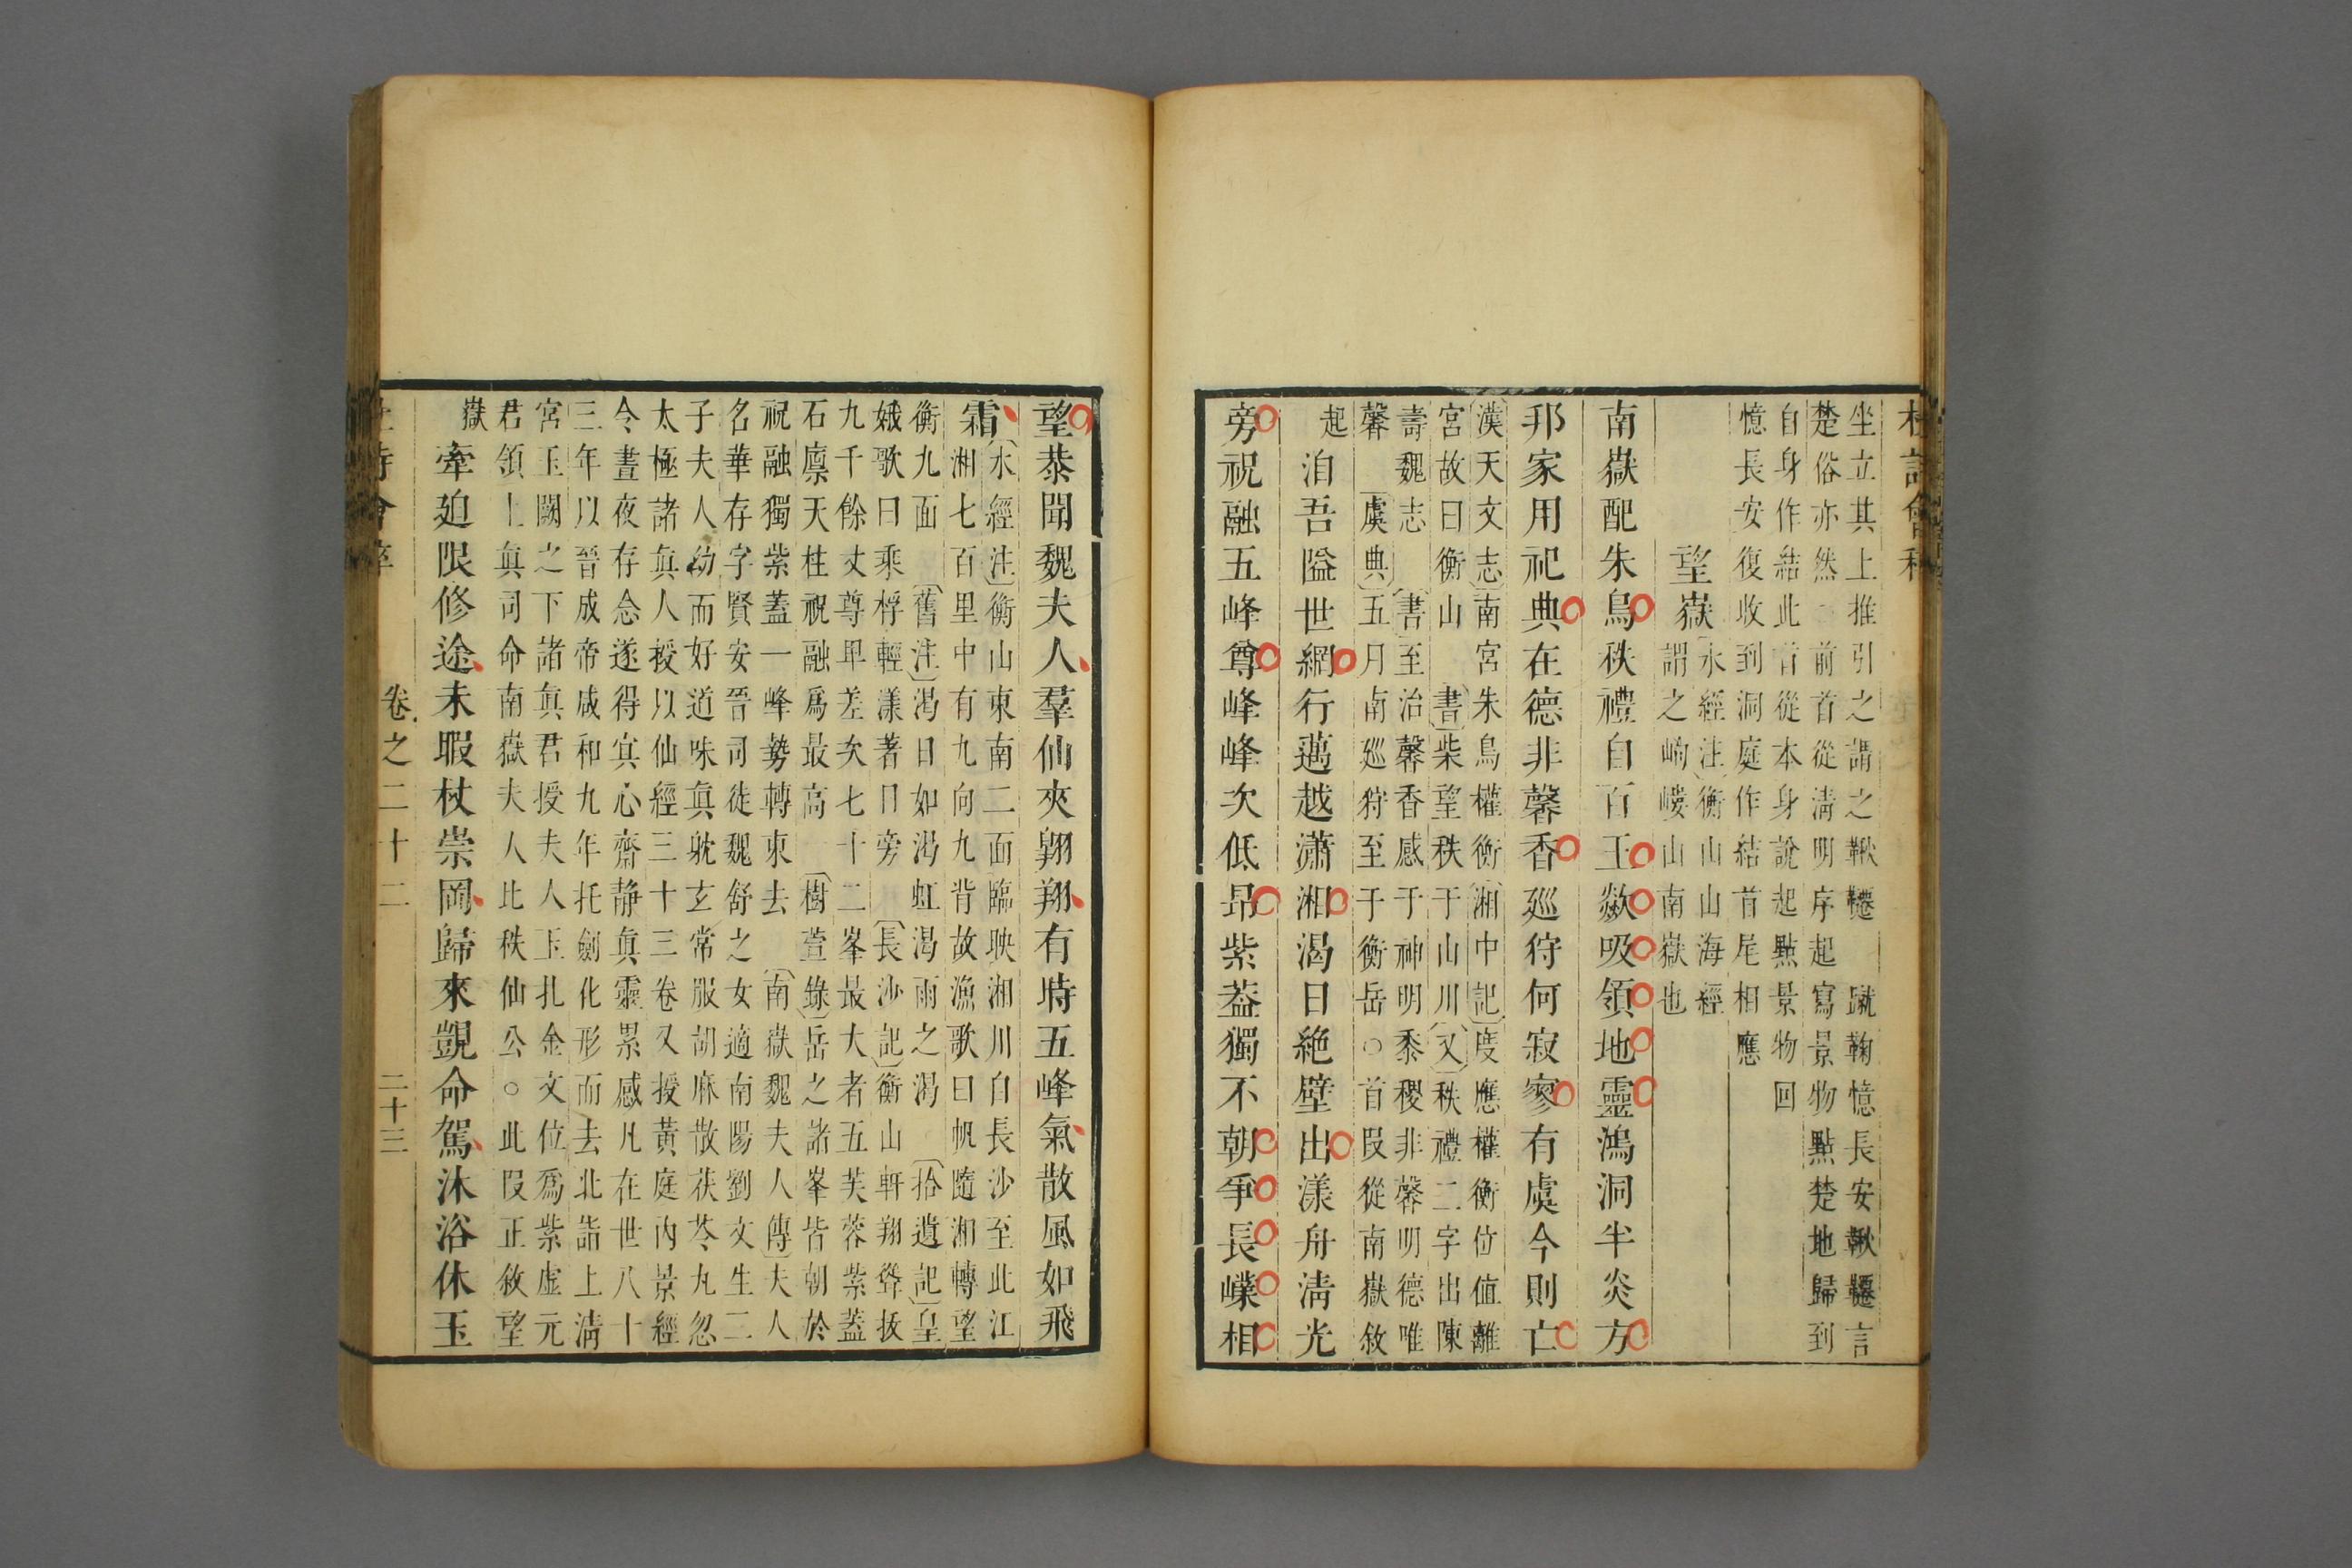 杜詩會稡
坐立其上推引之謂之鞦韆 蹴鞠憶長安鞦韆言
楚俗亦然 前首從淸明序起寫景物點楚地歸到
自身作結此首從本身說起點景物回
憶長安復收到洞庭作結首尾相應
望嶽
水經注衡山山海經
謂之岣嶁山南嶽也
南嶽配朱鳥秩禮自百王歘吸領地靈鴻洞半炎方
邦家用祀典在德非馨香廵狩何寂寥有虞今則亡
漢天文志南宮朱鳥權衡湘中記度應權衡位值離
宮故曰衡山 書柴望秩于山川又秩禮二字出陳
壽魏志 書至治馨香感于神明黍稷非馨明德唯
馨 虞典五月南廵狩至于衡岳○首段從南嶽敘
起
洎吾隘世網行邁越瀟湘渴日絶壁出漾舟淸光
旁祝融五峰尊峰峰次低昂紫葢獨不朝爭長嶫相
望恭聞魏夫人羣仙夾翺翔有時五峰氣散風如飛
霜
水經注衡山東南二面臨映湘川自長沙至此江
湘七百里中有九向九背故漁歌曰帆隨湘轉望
衡九面 舊注渴日如渴虹渴雨之渴 拾遺記皇
娥歌曰乘桴輕漾著日旁 長沙記衡山軒翔聳拔
九千餘丈尊卑差次七十二峯最大者五芙蓉紫蓋
石廩天柱祝融爲最高 樹萱錄岳之諸峯皆朝於
祝融獨紫蓋一峰勢轉東去 南嶽魏夫人傳夫人
名華存字賢安晉司徒魏舒之女適南陽劉文生二
子夫人幼而好道味眞躭玄常服胡麻散茯苓丸忽
太極諸眞人授以仙經三十三卷又授黃庭內景經
令晝夜存念遂得冥心齋静眞靈累感凡在世八十
三年以晉成帝咸和九年托劍化形而去北詣上淸
宮玉闕之下諸眞君授夫人玉札金文位爲紫虛元
君領上眞司命南嶽夫人比秩仙公○此段正敘望
嶽
牽迫限修途未暇杖崇岡歸來覬命駕沐浴休玉
卷之二十二 二十三